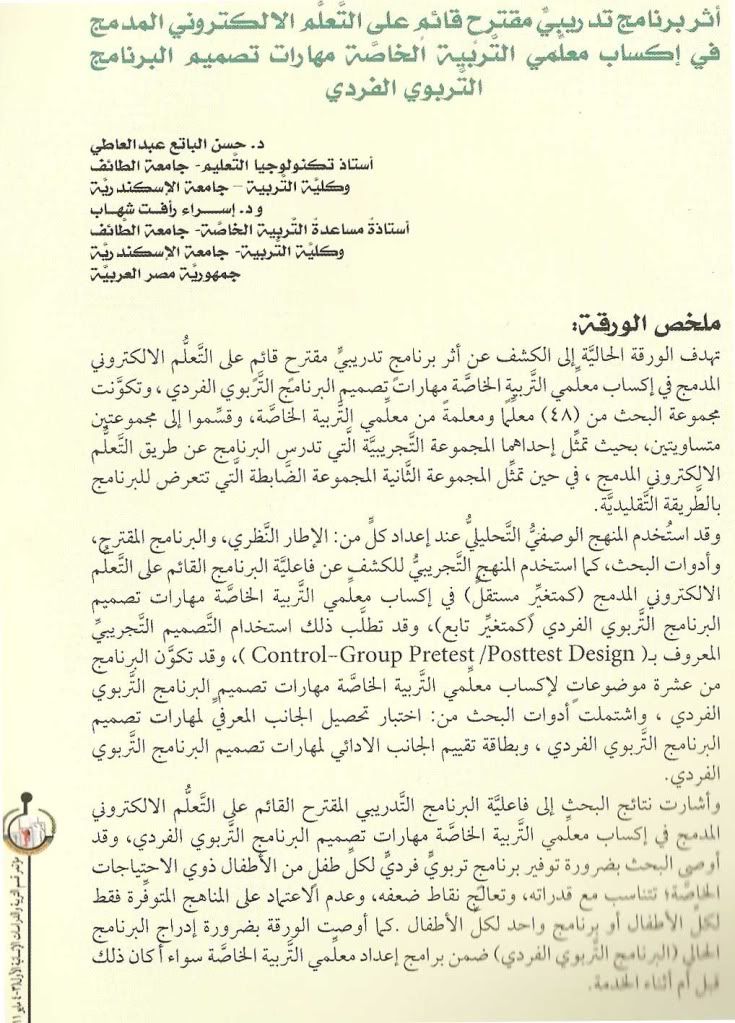 أثر برنامج تدريبيٍّ مقترح قائم على التَّعلُّم الالكتروني المدمج
في إكساب معلِّمي التَّربية الخاصَّة مهارات تصميم البرنامج
التَّربوي الفردي
د. حسن الباتع عبدالعاطي
أستاذ تكنولوجيا التَّعليم- جامعة الطائف
وكليَّة التَّربية – جامعة الإسكندريَّة
و د. إســراء رأفـت شهـاب
أستاذةُ مساعدةُ التَّربية الخاصَّة- جامعة الطَّائف
وكليَّة التَّربية- جامعة الإسكندريَّة
جمهوريَّة مصر العربيَّة
ملخص الورقة:
تهدف الورقة الحاليَّة إلى الكشف عن أثر برنامج تدريبيٍّ مقترح قائم على التَّعلُّم الالكتروني
المدمج في إكساب معلِّمي التَّربية الخاصَّة مهارات تصميم البرنامج التَّربوي الفردي ، وتكوَّنت
مجموعة البحث من (٤٨) معلِّمًا ومعلمة من معلِّمي التَّربية الخاصَّة، وقسِّموا إلى مجموعتين
متساويتين، بحيث تمثِّل إحداهما المجموعة التَّجريبيَّة الَّتي تدرس البرنامج عن طريق التَّعلُّم
الالكتروني المدمج ، في حين تمثِّل المجموعة الثَّانية المجموعة الضَّابطة الَّتي تتعرض للبرنامج
بالطَّريقة التَّقليديَّة.
وقد استُخدم المنهج الوصفيُّ التَّحليليُّ عند إعداد كلٍّ من: الإطار النَّظري، والبرنامج المقترح،
وأدوات البحث، كما استخدم المنهج التَّجريبيُّ للكشف عن فاعليَّة البرنامج القائم على التَّعلُّم
الالكتروني المدمج (كمتغيِّر مستقل) في إكساب معلِّمي التَّربية الخاصَّة مهارات تصميم
البرنامج التَّربوي الفردي (كمتغيِّر تابع)، وقد تطلَّب ذلك استخدام التَّصميم التَّجريبيِّ
المعروف بـ( Control-Group Pretest /Posttest Design )، وقد تكوَّن البرنامج
من عشرة موضوعاتٍ لإكساب معلِّمي التَّربية الخاصَّة مهارات تصميم البرنامج التَّربوي
الفردي ، واشتملت أدوات البحث من: اختبار تحصيل الجانب المعرفيِّ لمهارات تصميم
البرنامج التَّربوي الفردي ، وبطاقة تقييم الجانب الادائي لمهارات تصميم البرنامج التَّربوي
الفردي.
وأشارت نتائج البحث إلى فاعليَّة البرنامج التَّدريبي المقترح القائم على التَّعلُّم الالكتروني
المدمج في إكساب معلِّمي التَّربية الخاصَّة مهارات تصميم البرنامج التَّربوي الفردي، وقد
أوصى البحث بضرورة توفير برنامجٍ تربويٍّ فرديٍّ لكلِّ طفلٍ من الأطفال ذوي الاحتياجات
الخاصَّة؛ تتناسب مع قدراته، وتعالج نقاط ضعفه، وعدم الاعتماد على المناهج المتوفِّرة فقط
لكلِّ الأطفال أو برنامج واحد لكلِّ الأطفال .كما أوصت الورقة بضرورة إدراج البرنامج
الحالي (البرنامج التَّربوي الفردي) ضمن برامج إعداد معلِّمي التَّربية الخاصَّة سواء أكان ذلك
قبل أم أثناء الخدمة.